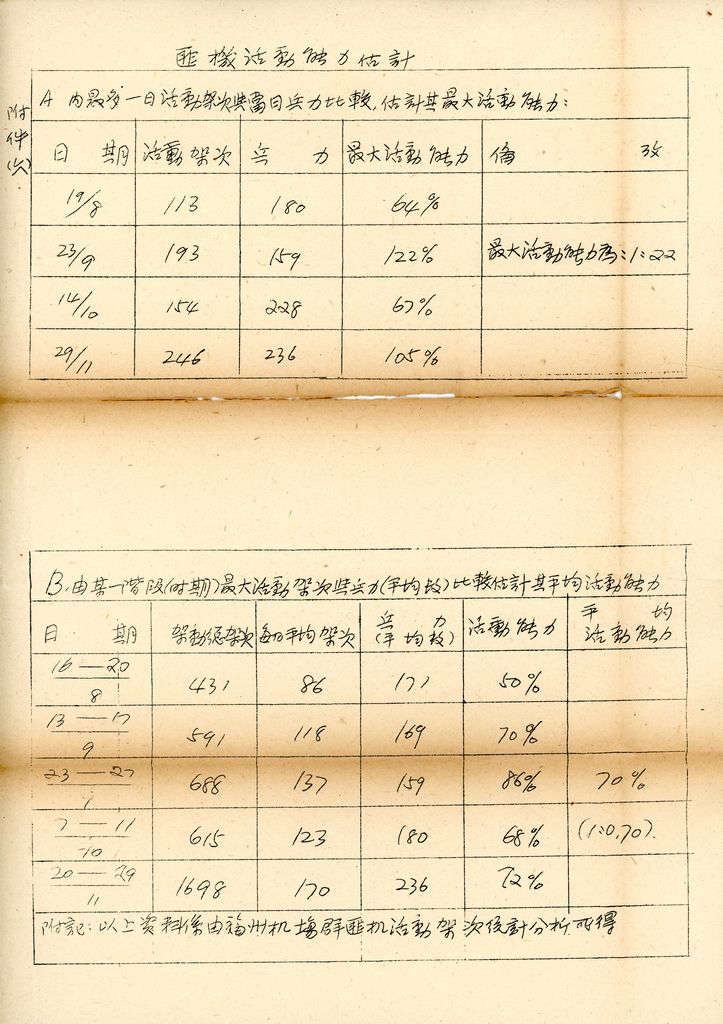 匪機活動能力估計
附件(六)
A 內最多一日活動架次與當日兵力比較,估計其最大活動能力:
日期 活動架次 兵力 最大活動能力 備攷
19/8 113 180 64%
23/9 193 159 122% 最大活動能力為:1:22
14/10 154 228 67%
29/11 246 236 105%
B.由某一階段(时期)最大活動架次與兵力(平均数)比較估計其平均活動能力
日期 架動總架次 每日平均架次 兵力(平均数) 活動能力 平均活動能力
16—20/8 431 86 171 50%
13—17/9 591 118 169 70%
23—27/ 688 137 159 86% 70%
7—11/10 615 123 180 68% (1:0,70).
20—29/11 1698 170 236 72%
附記:以上資料係由福州机場群匪机活動架次統計分析所得